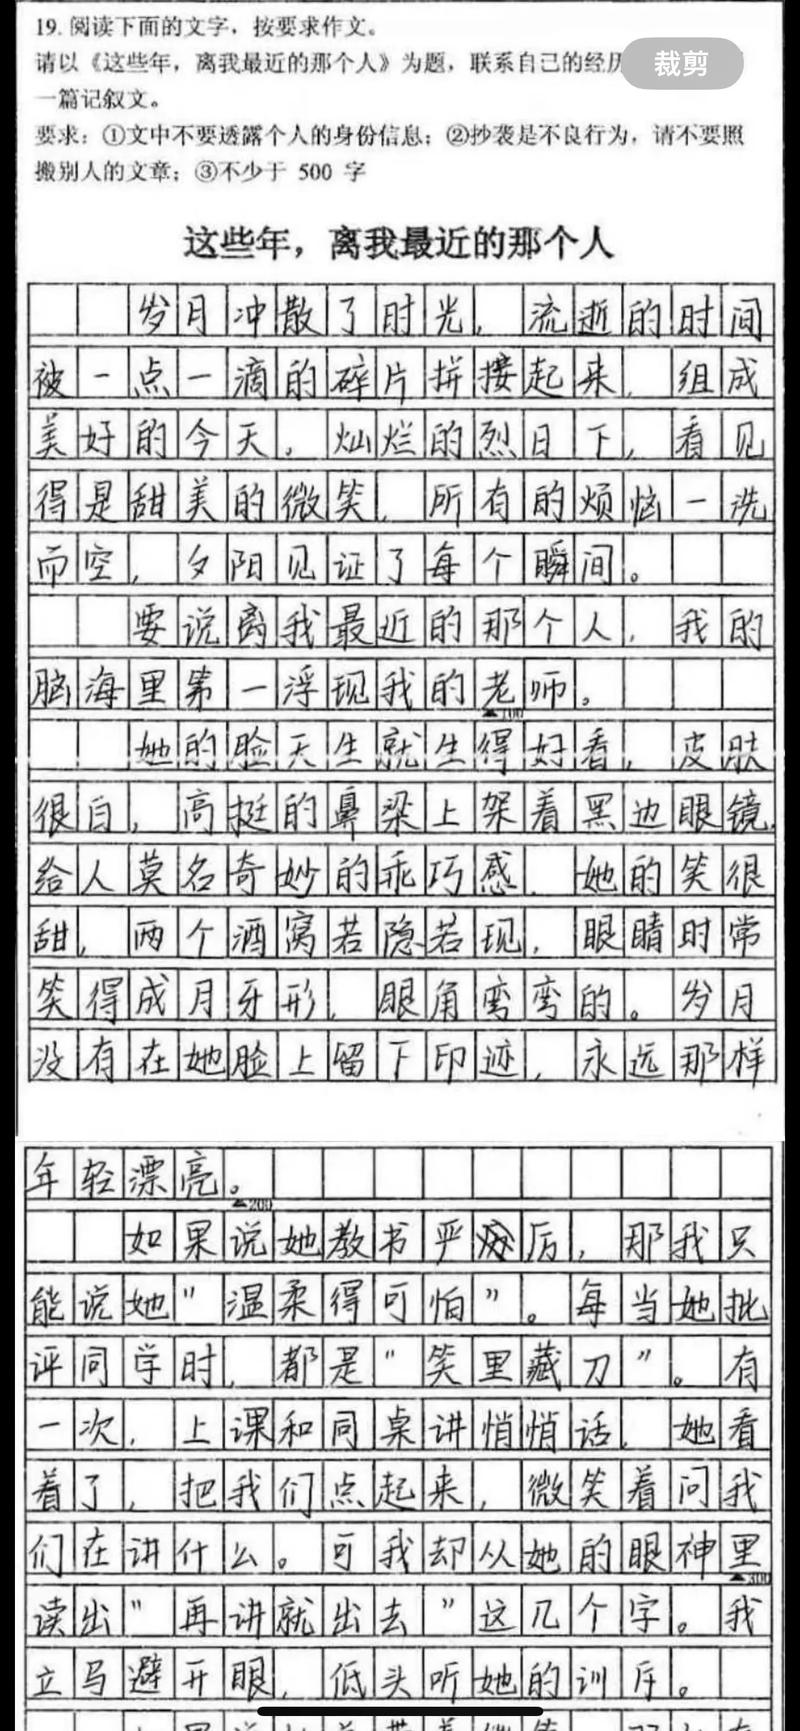 19. 阅读下面的文字，按要求作文。
请以《这些年，离我最近的那个人》为题，联系自己的经历
裁剪
一篇记叙文。
要求：①文中不要透露个人的身份信息；②抄袭是不良行为，请不要照
搬别人的文章；③不少于 500 字
这些年，离我最近的那个人
岁月冲散了时光，流逝的时间
被一点一滴的碎片拼接起来，组成
美好的今天。灿烂的烈日下，看见
得是甜美的微笑，所有的烦恼一洗
而空，夕阳见证了每个瞬间。
要说离我最近的那个人，我的
脑海里第一浮现我的老师。
▲100
她的脸天生就生得好看，皮肤
很白，高挺的鼻梁上架着黑边眼镜，
给人莫名奇妙的乖巧感，她的笑很
甜，两个酒窝若隐若现，眼睛时常
笑得成月牙形，眼角弯弯的。岁月
没有在她脸上留下印迹，永远那样
年轻漂亮。
▲200
如果说她教书严厉，那我只
能说她"温柔得可怕"。每当她批
评同学时，都是"笑里藏刀"。有
一次，上课和同桌讲悄悄话，她看
着了，把我们点起来，微笑着问我
们在讲什么。可我却从她的眼神里
▲300
读出"再讲就出去"这几个字。我
立马避开眼，低头听她的训斥。